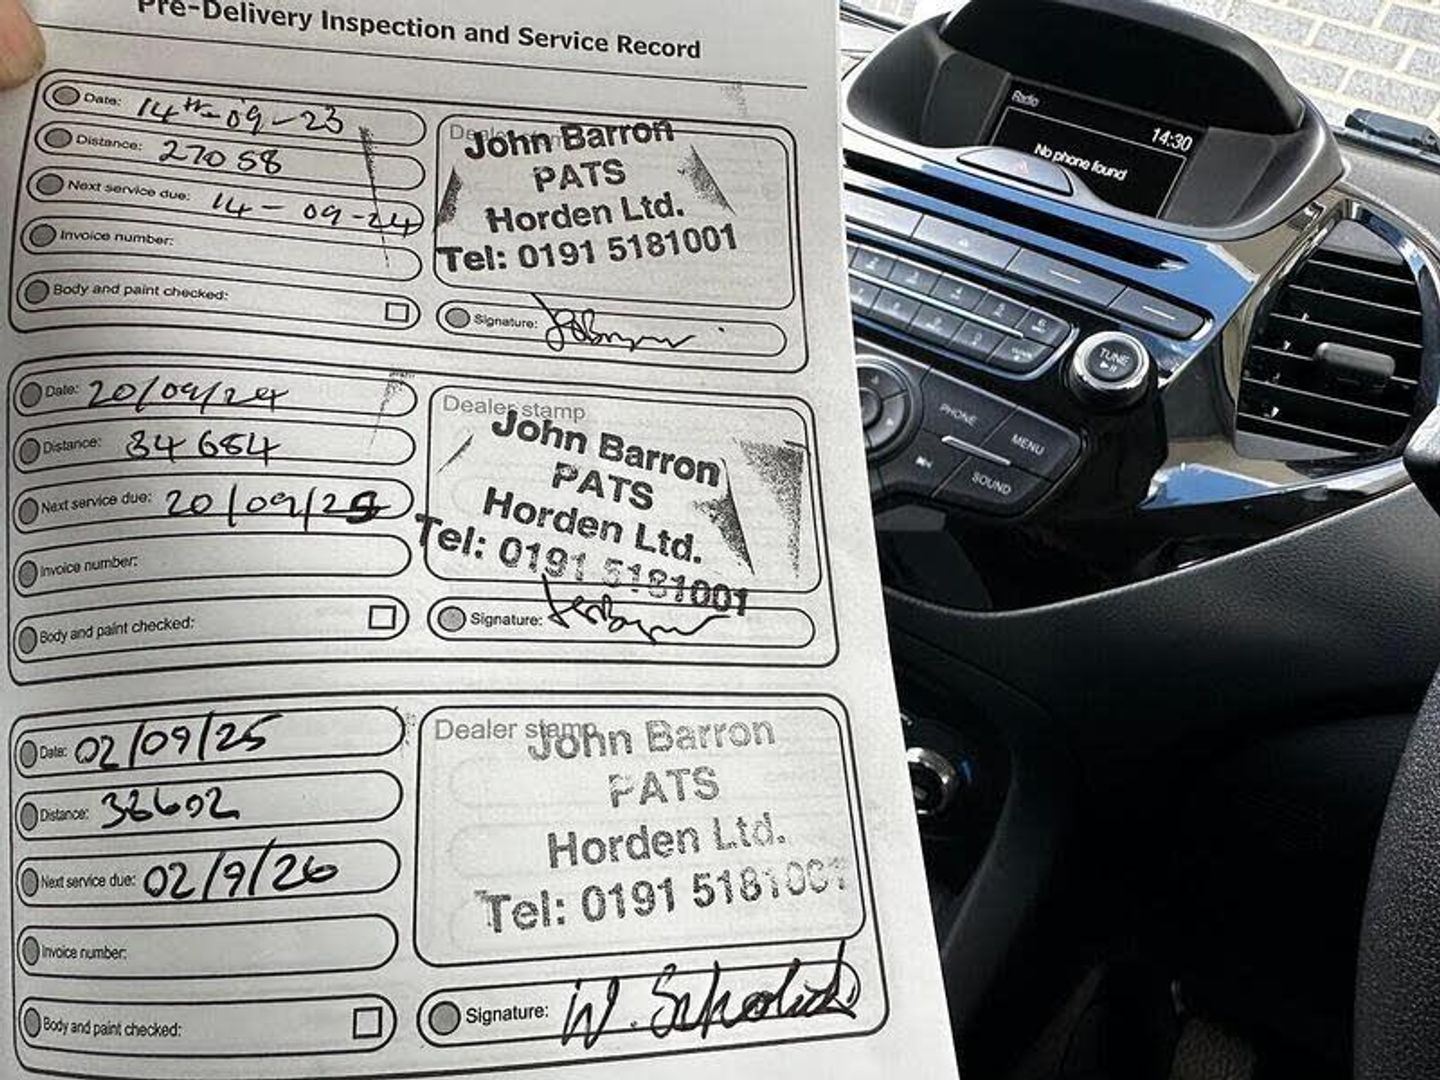 Pre-Delivery Inspection and Service Record
Date: 14th-09-23
Distance: 27058
Next service due: 14-09-24
Invoice number:
Body and paint checked:
Dealer stamp
John Barron
PATS
Horden Ltd.
Tel: 0191 5181001
Signature:
Date: 20/09/24
Distance: 34684
Next service due: 20/09/25
Invoice number:
Body and paint checked:
Dealer stamp
John Barron
PATS
Horden Ltd.
Tel: 0191 5181001
Signature:
Date: 02/09/25
Distance: 38602
Next service due: 02/9/26
Invoice number:
Body and paint checked:
Dealer stamp
John Barron
PATS
Horden Ltd.
Tel: 0191 5181001
Signature: W.
Radio
14:30
No phone found
TUNE
PHONE
MENU
SOUND